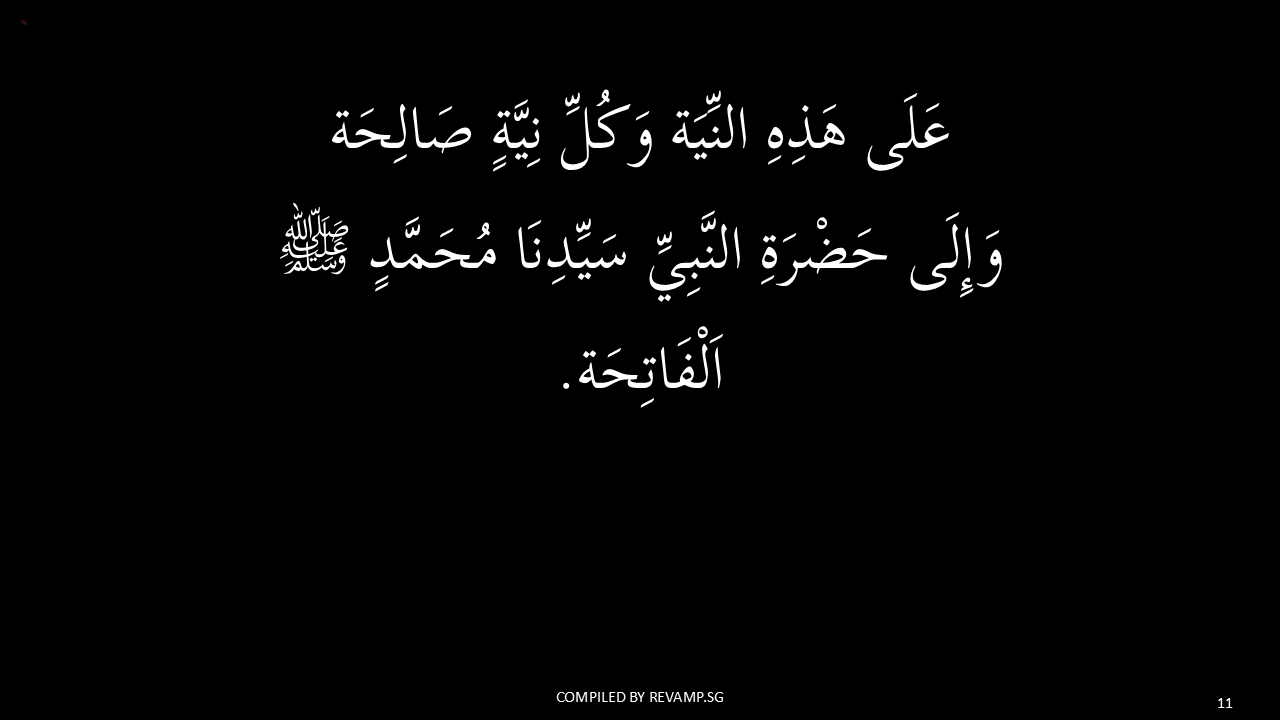 عَلَى هَذِهِ النِّيَة وَكُلِّ نِيَّةٍ صَالِحَة
وَإِلَى حَضْرَةِ النَّبِيِّ سَيِّدِنَا مُحَمَّدٍ ﷺ
اَلْفَاتِحَة.
COMPILED BY REVAMP.SG
11